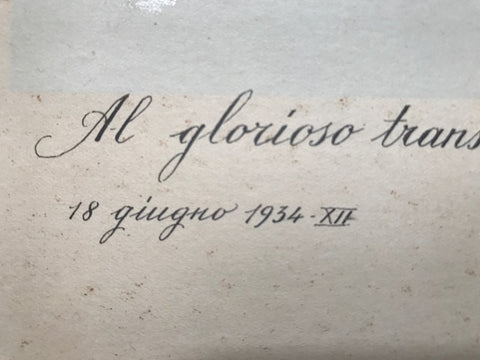 Al glorioso trans
18 giugno 1934-XII